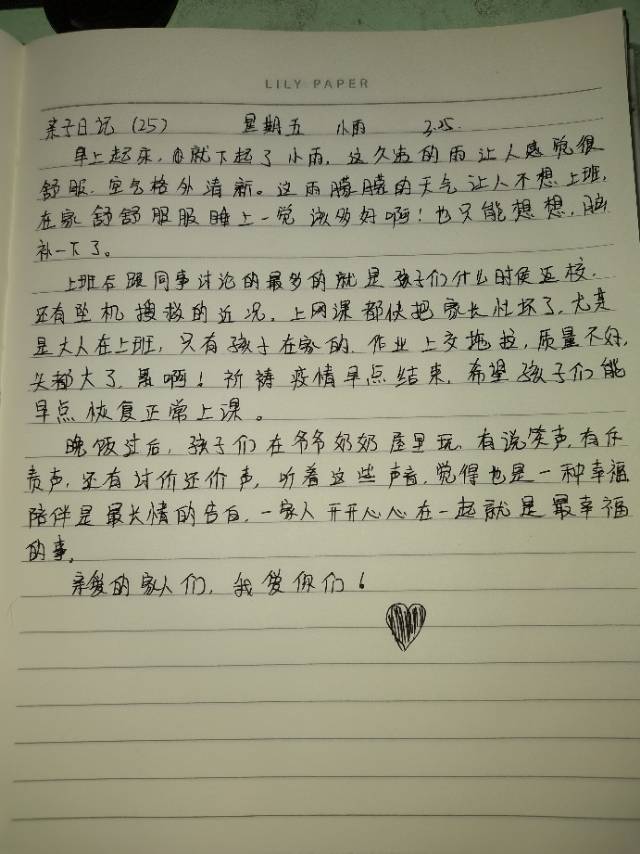 LILY PAPER
亲子日记（25） 星期五 小雨 3.25.
早上起床，就下起了小雨，这久违的雨让人感觉很
舒服，空气格外清新。这雨朦朦的天气让人不想上班，
在家舒舒服服睡上一觉该多好啊！也只能想想，脑
补一下了。
上班后跟同事讨论的最多的就是孩子们什么时候返校，
还有坠机搜救的近况，上网课都快把家长忙坏了，尤其
是大人在上班，只有孩子在家的，作业上交拖拉，质量不好，
头都大了，愚啊！祈祷疫情早点结束，希望孩子们能
早点恢复正常上课。
晚饭过后，孩子们在爷爷奶奶屋里玩，有说笑声，有斥
责声，还有讨价还价声，听着这些声音，觉得也是一种幸福
陪伴是最长情的告白，一家人开开心心在一起就是最幸福
的事。
亲爱的家人们，我爱你们！